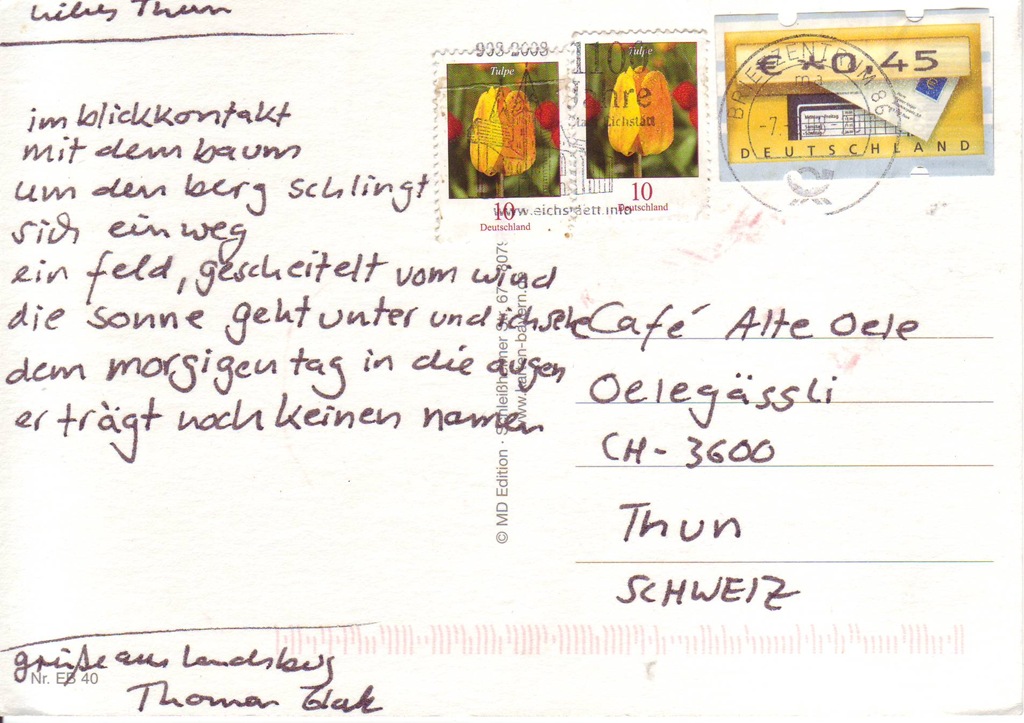 liebes Thun
im blickkontakt
mit dem baum
um den berg schlingt
sich ein weg
ein feld, gescheitelt vom wind
die sonne geht unter und ich sehe
dem morgigen tag in die augen
er trägt noch keinen namen
grüße aus Landsberg
Thomas
Nr. EB 40
© MD Edition
www.karten-bayern.de
908-2008
1100
Jahre
Stadt Eichstätt
www.eichstaett.info
Tulpe
10
Deutschland
Tulpe
10
Deutschland
BRIEFZENTRUM 86
€ 0,45
DEUTSCHLAND
Café Alte Oele
Oelegässli
CH-3600
Thun
SCHWEIZ